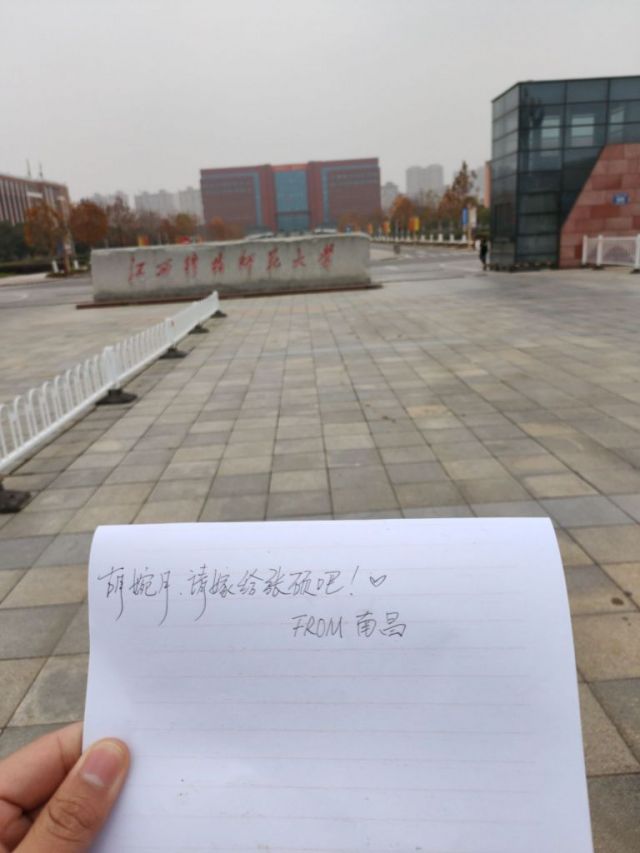 江西科技师范大学
胡婉月.请嫁给张硕吧!♡
FROM 南昌